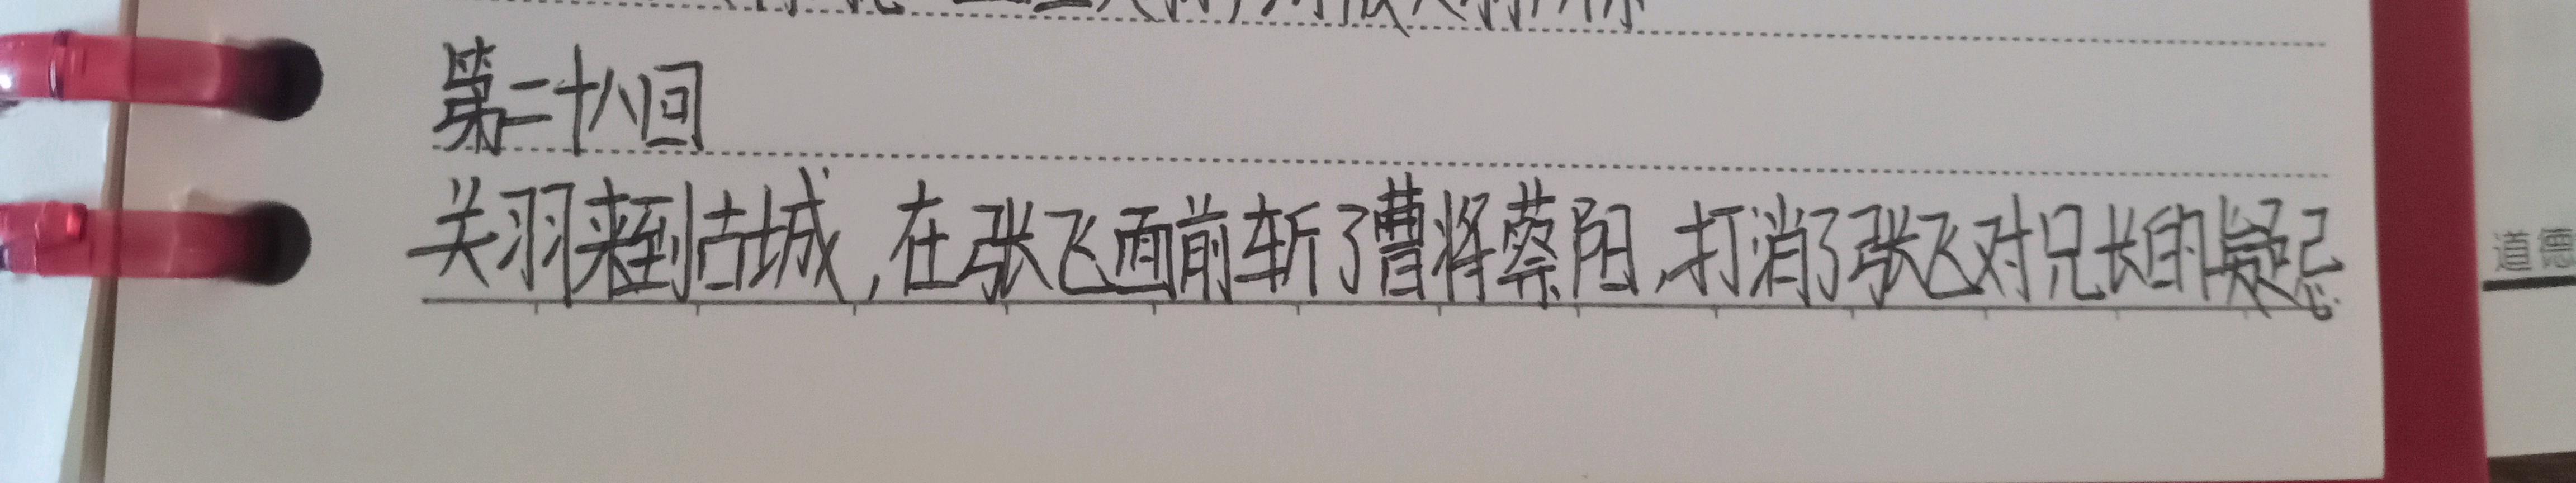 第二十八回
关羽来到古城,在张飞面前斩了曹将蔡阳,打消了张飞对兄长的疑忌
道德